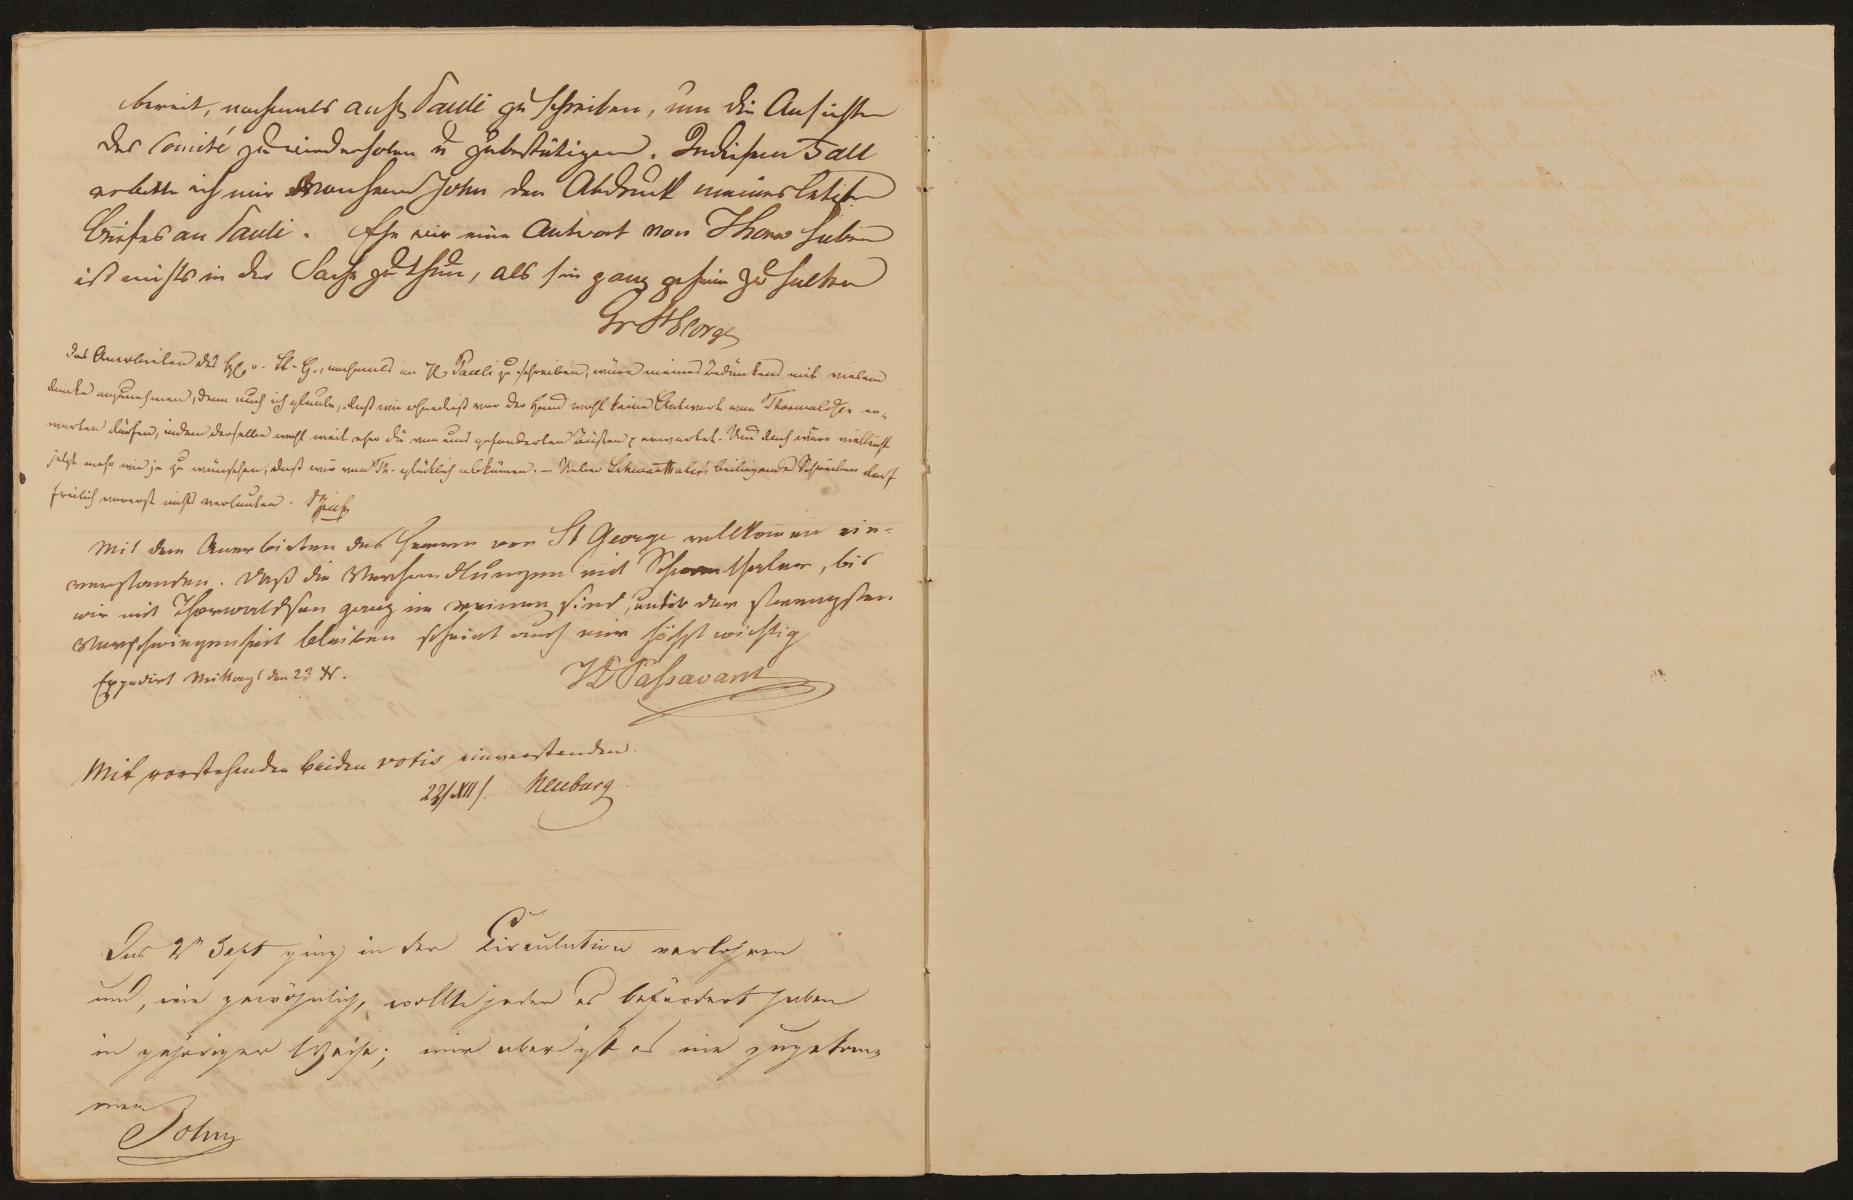 bereit, nochmals an H. Pauli zu schreiben, um die Ansichten
des Comité zu wiederholen u zu bestätigen. In diesem Fall
erbitte ich mir von Herrn John den Abdruck meines letzten
Briefes an Pauli. Ehe wir eine Antwort von Thorw haben
ist nichts in der Sache zu thun, als sie ganz geheim zu halten
Gr St George
das Anerbieten des H. v. St. G., nochmals an H. Pauli zu schreiben, wäre meines Bedünkens mit vielem
Danke anzunehmen, denn auch ich glaube, daß wir ohnedieß vor der Hand wohl keine Antwort von Thorwaldsen er-
warten dürfen, indem derselbe wohl weit eher die von uns geforderten erwartet. Und doch wäre vielleicht
jetzt mehr wie je zu wünschen, daß wir von Th. glücklich abkämen. — Ueber Schwanthaler's beiliegendes Schreiben darf
freilich vorerst nichts verlauten.
Mit dem Anerbieten des Herrn von St George vollkommen ein-
verstanden. Daß die Verhandlungen mit Schwanthaler, bis
wir mit Thorwaldsen ganz im reinen sind, unter der strengsten
Verschwiegenheit bleiben scheint auch mir höchst wichtig
Expedirt Mittags den 23 Xr.
JD Passavant
Mit vorstehenden beiden votis einverstanden.
23/XII/. Neuburg
Das 2n Heft ging in der Circulation verlohren
und, wie gewöhnlich, wollte jeder es befördert haben
in gehöriger Weise; mir aber ist es nie zugekom-
men
John